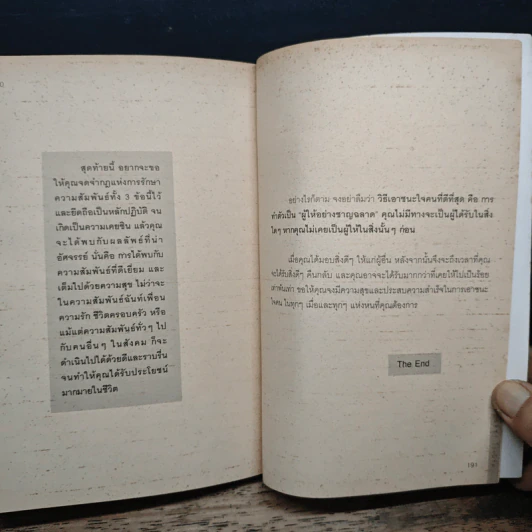 สุดท้ายนี้ อยากจะขอ
ให้คุณจดจำกฎแห่งการรักษา
ความสัมพันธ์ทั้ง 3 ข้อนี้ไว้
และยึดถือเป็นหลักปฏิบัติ จน
เกิดเป็นความเคยชิน แล้วคุณ
จะได้พบกับผลลัพธ์ที่น่า
อัศจรรย์ นั่นคือ การได้พบกับ
ความสัมพันธ์ที่ดีเยี่ยม และ
เต็มไปด้วยความสุข ไม่ว่าจะ
ในความสัมพันธ์ฉันท์เพื่อน
ความรัก ชีวิตครอบครัว หรือ
แม้แต่ความสัมพันธ์ทั่วๆ ไป
กับคนอื่นๆ ในสังคม ก็จะ
ดำเนินไปได้ด้วยดีและราบรื่น
จนทำให้คุณได้รับประโยชน์
มากมายในชีวิต
อย่างไรก็ตาม จงอย่าลืมว่า วิธีเอาชนะใจคนที่ดีที่สุด คือ การ
ทำตัวเป็น "ผู้ให้อย่างชาญฉลาด" คุณไม่มีทางจะเป็นผู้ได้รับในสิ่ง
ใดๆ หากคุณไม่เคยเป็นผู้ให้ในสิ่งนั้นๆ ก่อน
เมื่อคุณได้มอบสิ่งดีๆ ให้แก่ผู้อื่น หลังจากนั้นจึงจะถึงเวลาที่คุณ
จะได้รับสิ่งดีๆ คืนกลับ และคุณอาจจะได้รับมากกว่าที่เคยให้ไปเป็นร้อย
เท่าพันเท่า ขอให้คุณจงมีความสุขและประสบความสำเร็จในการเอาชนะ
ใจคน ในทุกๆ เมื่อและทุกๆ แห่งหนที่คุณต้องการ
The End
191